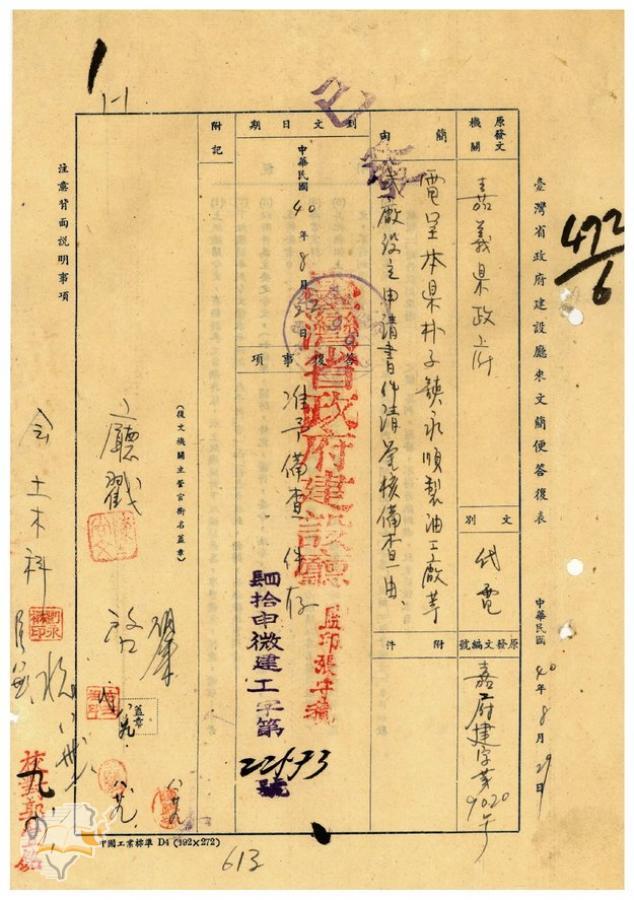 臺灣省政府建設廳來文簡便答復表
中華民國40年8月29日
472/6
原發文機關
嘉義県政府
文別
代電
原發文編號
嘉府建字第9020号
簡由
電呈本県朴子鎮永順製油工廠等
廠設立申請書件請鑒核備查由
附件
到文日期
中華民國40年8月
答復事項
准予備查件存
臺灣省政府建設廳
監印張守
肆拾申微建工字第
22573
號
附記
(復文機關主管官銜名蓋章)
廳戳
蓋章
會土木科
注意背面說明事項
中國工業標準 D4 (192×272)
613